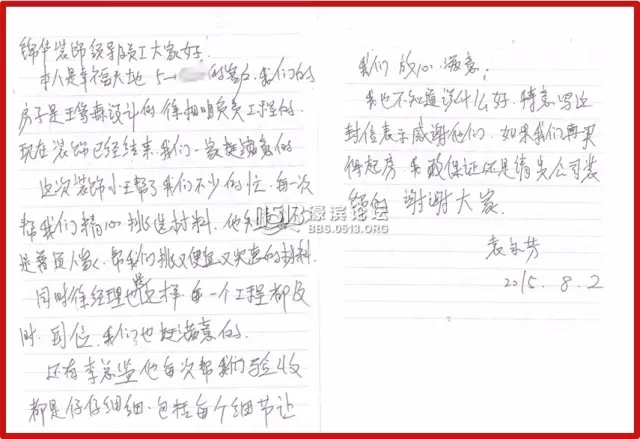 锦华装饰领导员工大家好。
本人是幸福天地 5-1 的客户，我们的
房子是王 设计的 徐相明负责工程的
现在装饰已经结束，我们一家挺满意的
这次装饰小王帮了我们不少的忙，每一次
帮我们精心挑选材料，他知
是普通人家，帮我们挑又便宜又实惠的材料
同时徐经理也是这样，每一个工程都及
时、到位，我们也挺满意的
还有李总监他每次帮我们验收
都是仔仔细细，包括每个细节让
我们放心、满意；
我也不知道说什么好，特意写这
封信表示感谢他们，如果我们再买
得起房 我敢保证还是请贵公司装
饰的 谢谢大家
袁 芳
2015. 8. 2
濠滨论坛
BBS.0513.ORG